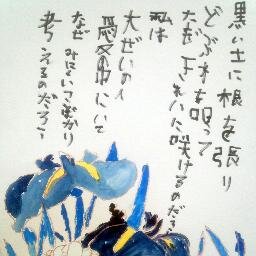 黒い土に根を張り
どぶ水を吸って
なぜきれいに咲けるのだろう
私は
大ぜいの人の
愛の中にいて
なぜみにくいことばかり
考えるのだろう